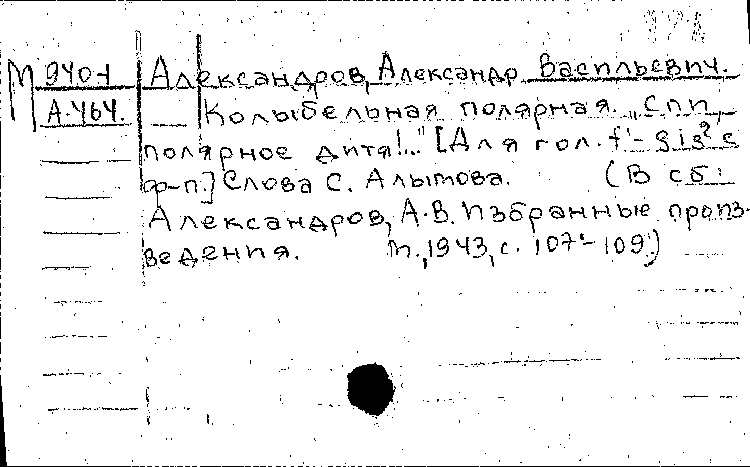 М 940-1 Александров, Александр Васильевич.
А-464. Колыбельная полярная. „Спи,
полярное дитя!..." [Для гол. f'-gis² с
ф-п.] Слова С. Алымова. (В сб.:
Александров, А.В. Избранные произ-
ведения. М., 1943, с. 107-109.)